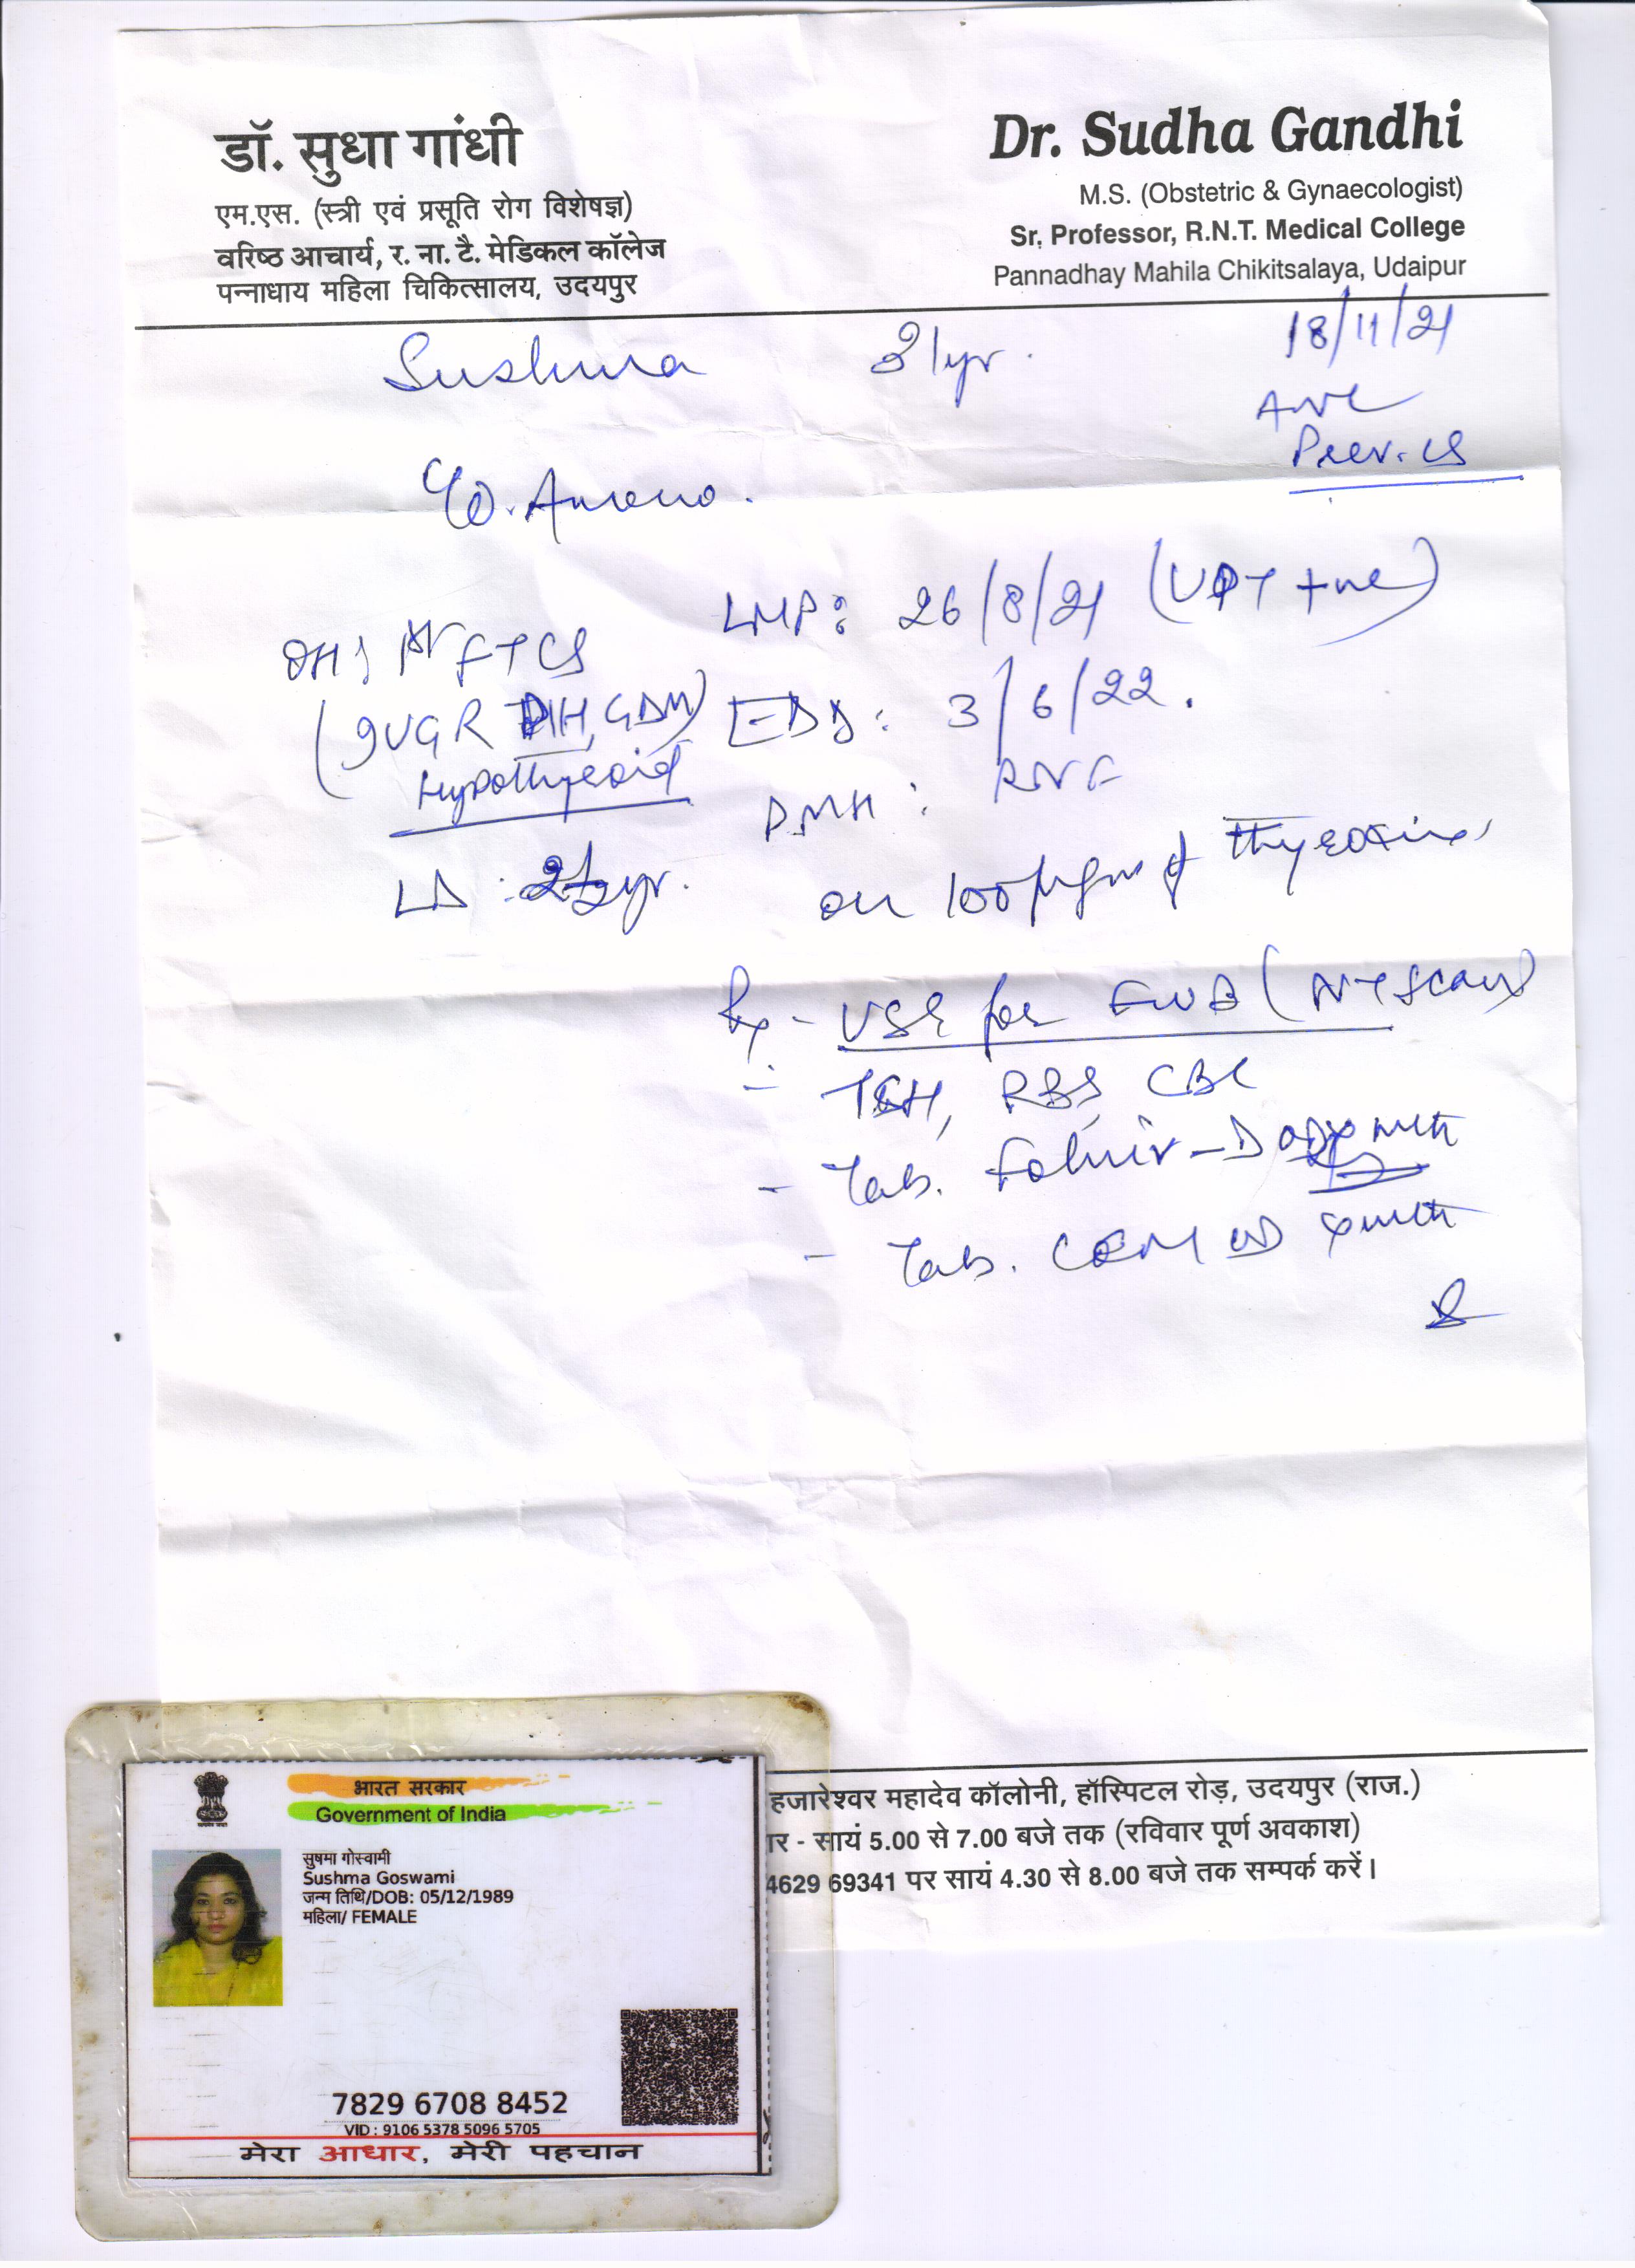 डॉ. सुधा गांधी
एम.एस. (स्त्री एवं प्रसूति रोग विशेषज्ञ)
वरिष्ठ आचार्य, र. ना. टै. मेडिकल कॉलेज
पन्नाधाय महिला चिकित्सालय, उदयपुर
Dr. Sudha Gandhi
M.S. (Obstetric & Gynaecologist)
Sr. Professor, R.N.T. Medical College
Pannadhay Mahila Chikitsalaya, Udaipur
Sushma 31yr. 18/11/21
ANC
Prev. CS
LMP: 26/8/21 (UPT +ve)
OH: FTCS
(IUGR PIH, GDM)
Hypothyroid
EDD: 3/6/22.
LD: 2½yr.
on 100 µgm of thyroxine
Rx - USG for FWB (NT scan)
- TSH, RBS, CBC
- Tab. Folinir-D
- Tab.
हजारेश्वर महादेव कॉलोनी, हॉस्पिटल रोड़, उदयपुर (राज.)
- सायं 5.00 से 7.00 बजे तक (रविवार पूर्ण अवकाश)
4629 69341 पर सायं 4.30 से 8.00 बजे तक सम्पर्क करें।
भारत सरकार
Government of India
सुषमा गोस्वामी
Sushma Goswami
जन्म तिथि/DOB: 05/12/1989
महिला/ FEMALE
7829 6708 8452
VID : 9106 5378 5096 5705
मेरा आधार, मेरी पहचान